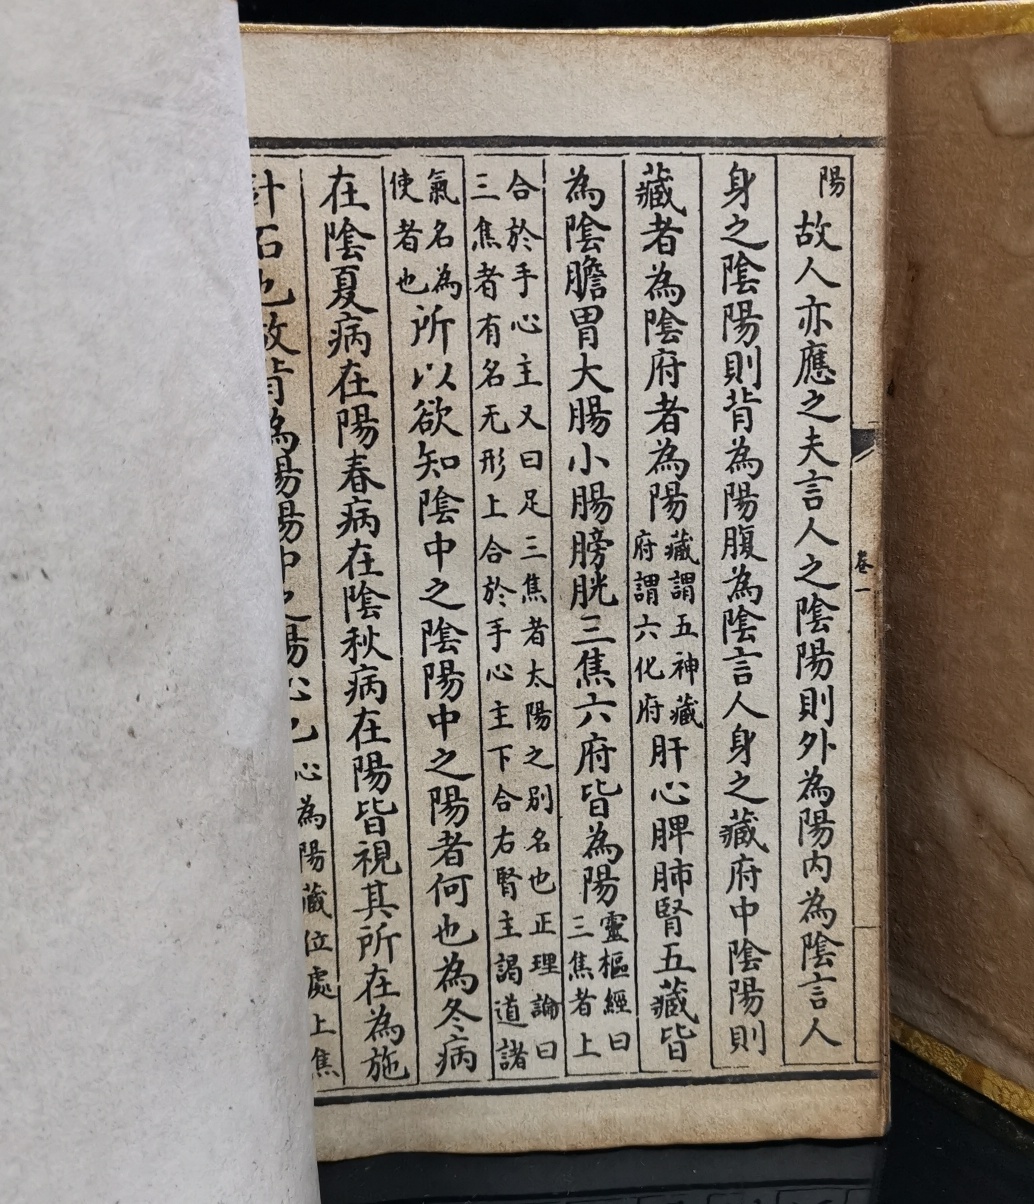 卷一
陽故人亦應之夫言人之陰陽則外為陽内為陰言人
身之陰陽則背為陽腹為陰言人身之藏府中陰陽則
藏者為陰府者為陽藏謂五神藏府謂六化府肝心脾肺腎五藏皆
為陰膽胃大腸小腸膀胱三焦六府皆為陽靈樞經曰三焦者上
合於手心主又曰足三焦者太陽之別名也正理論曰
三焦者有名无形上合於手心主下合右腎主謁道諸
氣名為使者也所以欲知陰中之陰陽中之陽者何也為冬病
在陰夏病在陽春病在陰秋病在陽皆視其所在為施
針石也故背為陽陽中之陽心也心為陽藏位處上焦